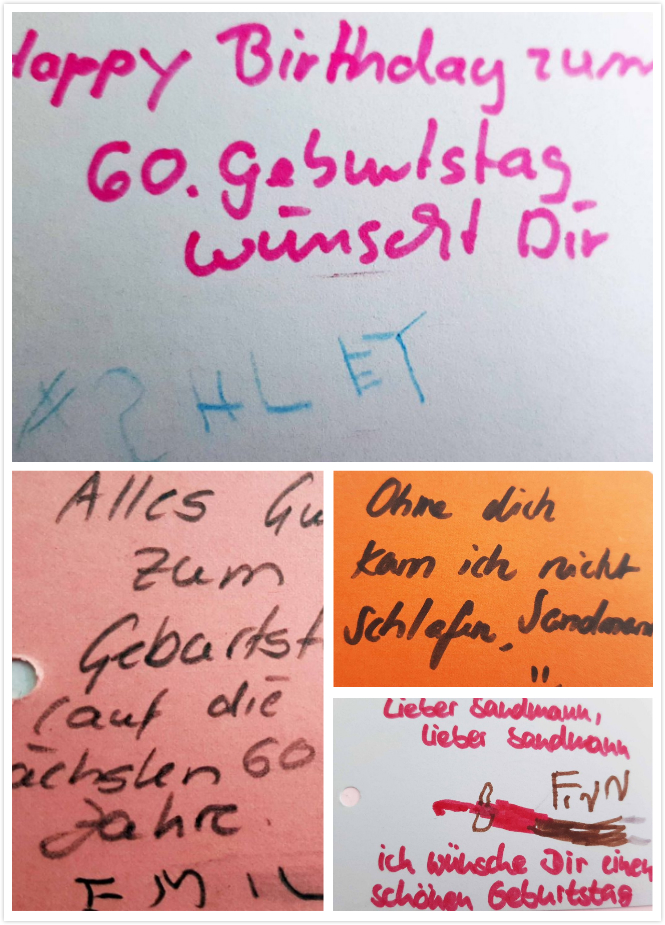 Happy Birthday zum
60. Geburtstag
wünscht Dir
ASHLEY
Alles Gu
zum
Geburtst
(auf die
ächsten 60
Jahre.
EMIL
Ohne dich
kann ich nicht
schlafen, Sandmann
Lieber Sandmann,
lieber Sandmann
FiNN
ich wünsche Dir einen
schönen Geburtstag